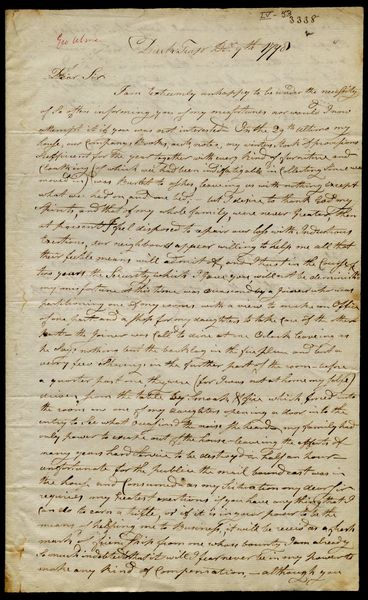 IV-53
3338
Dear Sir
I am Extreemly unhappy to be under the necessity
of so often informing you of my misfortunes nor would I now
attempt it if you was not interested. On the 29th ultimo my
house, our Company Books, acts, notes, my winters stock of provisions
sufficient for the year together with every kind of furniture and
Cloathing (of which we had been indefatigable in Collecting since we
moved in) was Burnt to ashes, leaving us with nothing except
what we had on, and one bed, but I desire to thank God my
Spirits, and that of my whole family, were never greater than
at present I feel disposed to repair our loss with Industrious
Exertions, our neighbours appear willing to help me all that
their feeble means will admit of, and I trust in the Course of
two years the Security which I gave you will not be diminished
my misfortune at this time was occasioned by a joiner who was
partitioning one of my rooms with a view to make an Office
of one part and a shop for my daughters to take care of the other
part the Joiner was Call'd to dine at one O Clock leaving as
he says nothing but the backlog in the fire place and but a
very few Shavings in the further part of the room before
a quarter past one they were (for I was not at home my self)
driven from the table by Smoack & fire which forced into
the room on one of my daughters opening a door into the
entry to see what occasioned the noise she heard, my family had
only power to escape out of the house leaving the effects of
many years hard service to be destroy'd in half an hour
unfortunate for the publick the mail bound east was in
the house and Consumed. As my Situation my dear Sir
requires my greatest exertions if you have any thing that I
can do to earn a trifle, or if it is in your power to be the
means of helping me to Business, it will be received as a fresh
mark of friendship from one whose bounty, I am already
so much indebted to that it will I fear never be in my power to
make any kind of Compensation — although you